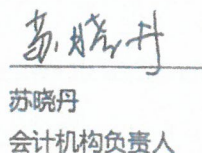 苏晓丹
苏晓丹
会计机构负责人